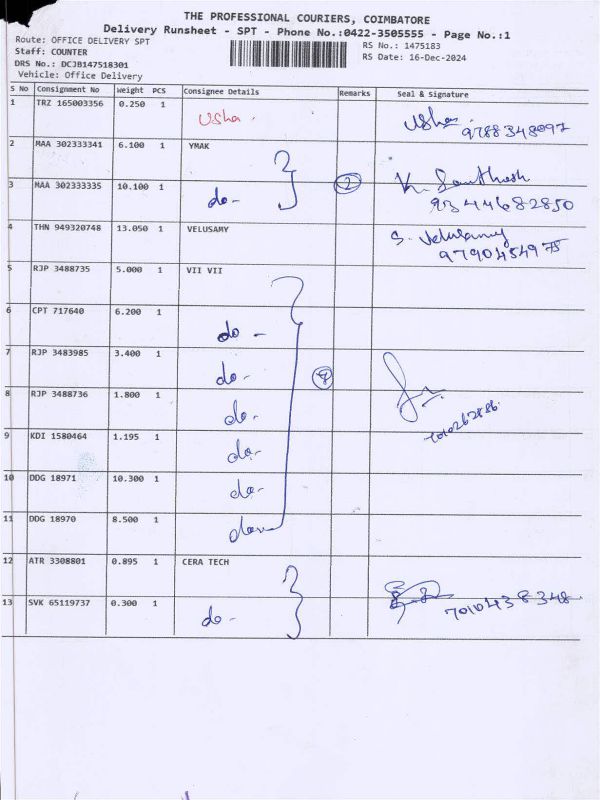 THE PROFESSIONAL COURIERS, COIMBATORE
Delivery Runsheet - SPT - Phone No.:0422-3505555 - Page No.:1
Route: OFFICE DELIVERY SPT
RS No.: 1475183
Staff: COUNTER
RS Date: 16-Dec-2024
DRS No.: DCJB147518301
Vehicle: Office Delivery
S No Consignment No Weight PCS Consignee Details Remarks Seal & Signature
1 TRZ 165003356 0.250 1 Usha. Usha.
9788348097
2 MAA 302333341 6.100 1 YMAK
3 MAA 302333335 10.100 1 do- 2 K. Santhosh
9344682850
4 THN 949320748 13.050 1 VELUSAMY S. Velusamy
9790454975
5 RJP 3488735 5.000 1 VII VII
6 CPT 717640 6.200 1 do -
7 RJP 3483985 3.400 1 do-
8 RJP 3488736 1.800 1 do- 7010262886
9 KDI 1580464 1.195 1 do-
10 DDG 18971 10.300 1 do-
11 DDG 18970 8.500 1 do
12 ATR 3308801 0.895 1 CERA TECH
13 SVK 65119737 0.300 1 do- 7010438348